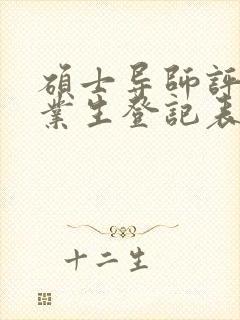 碩士导師評
業生登記表
十二生